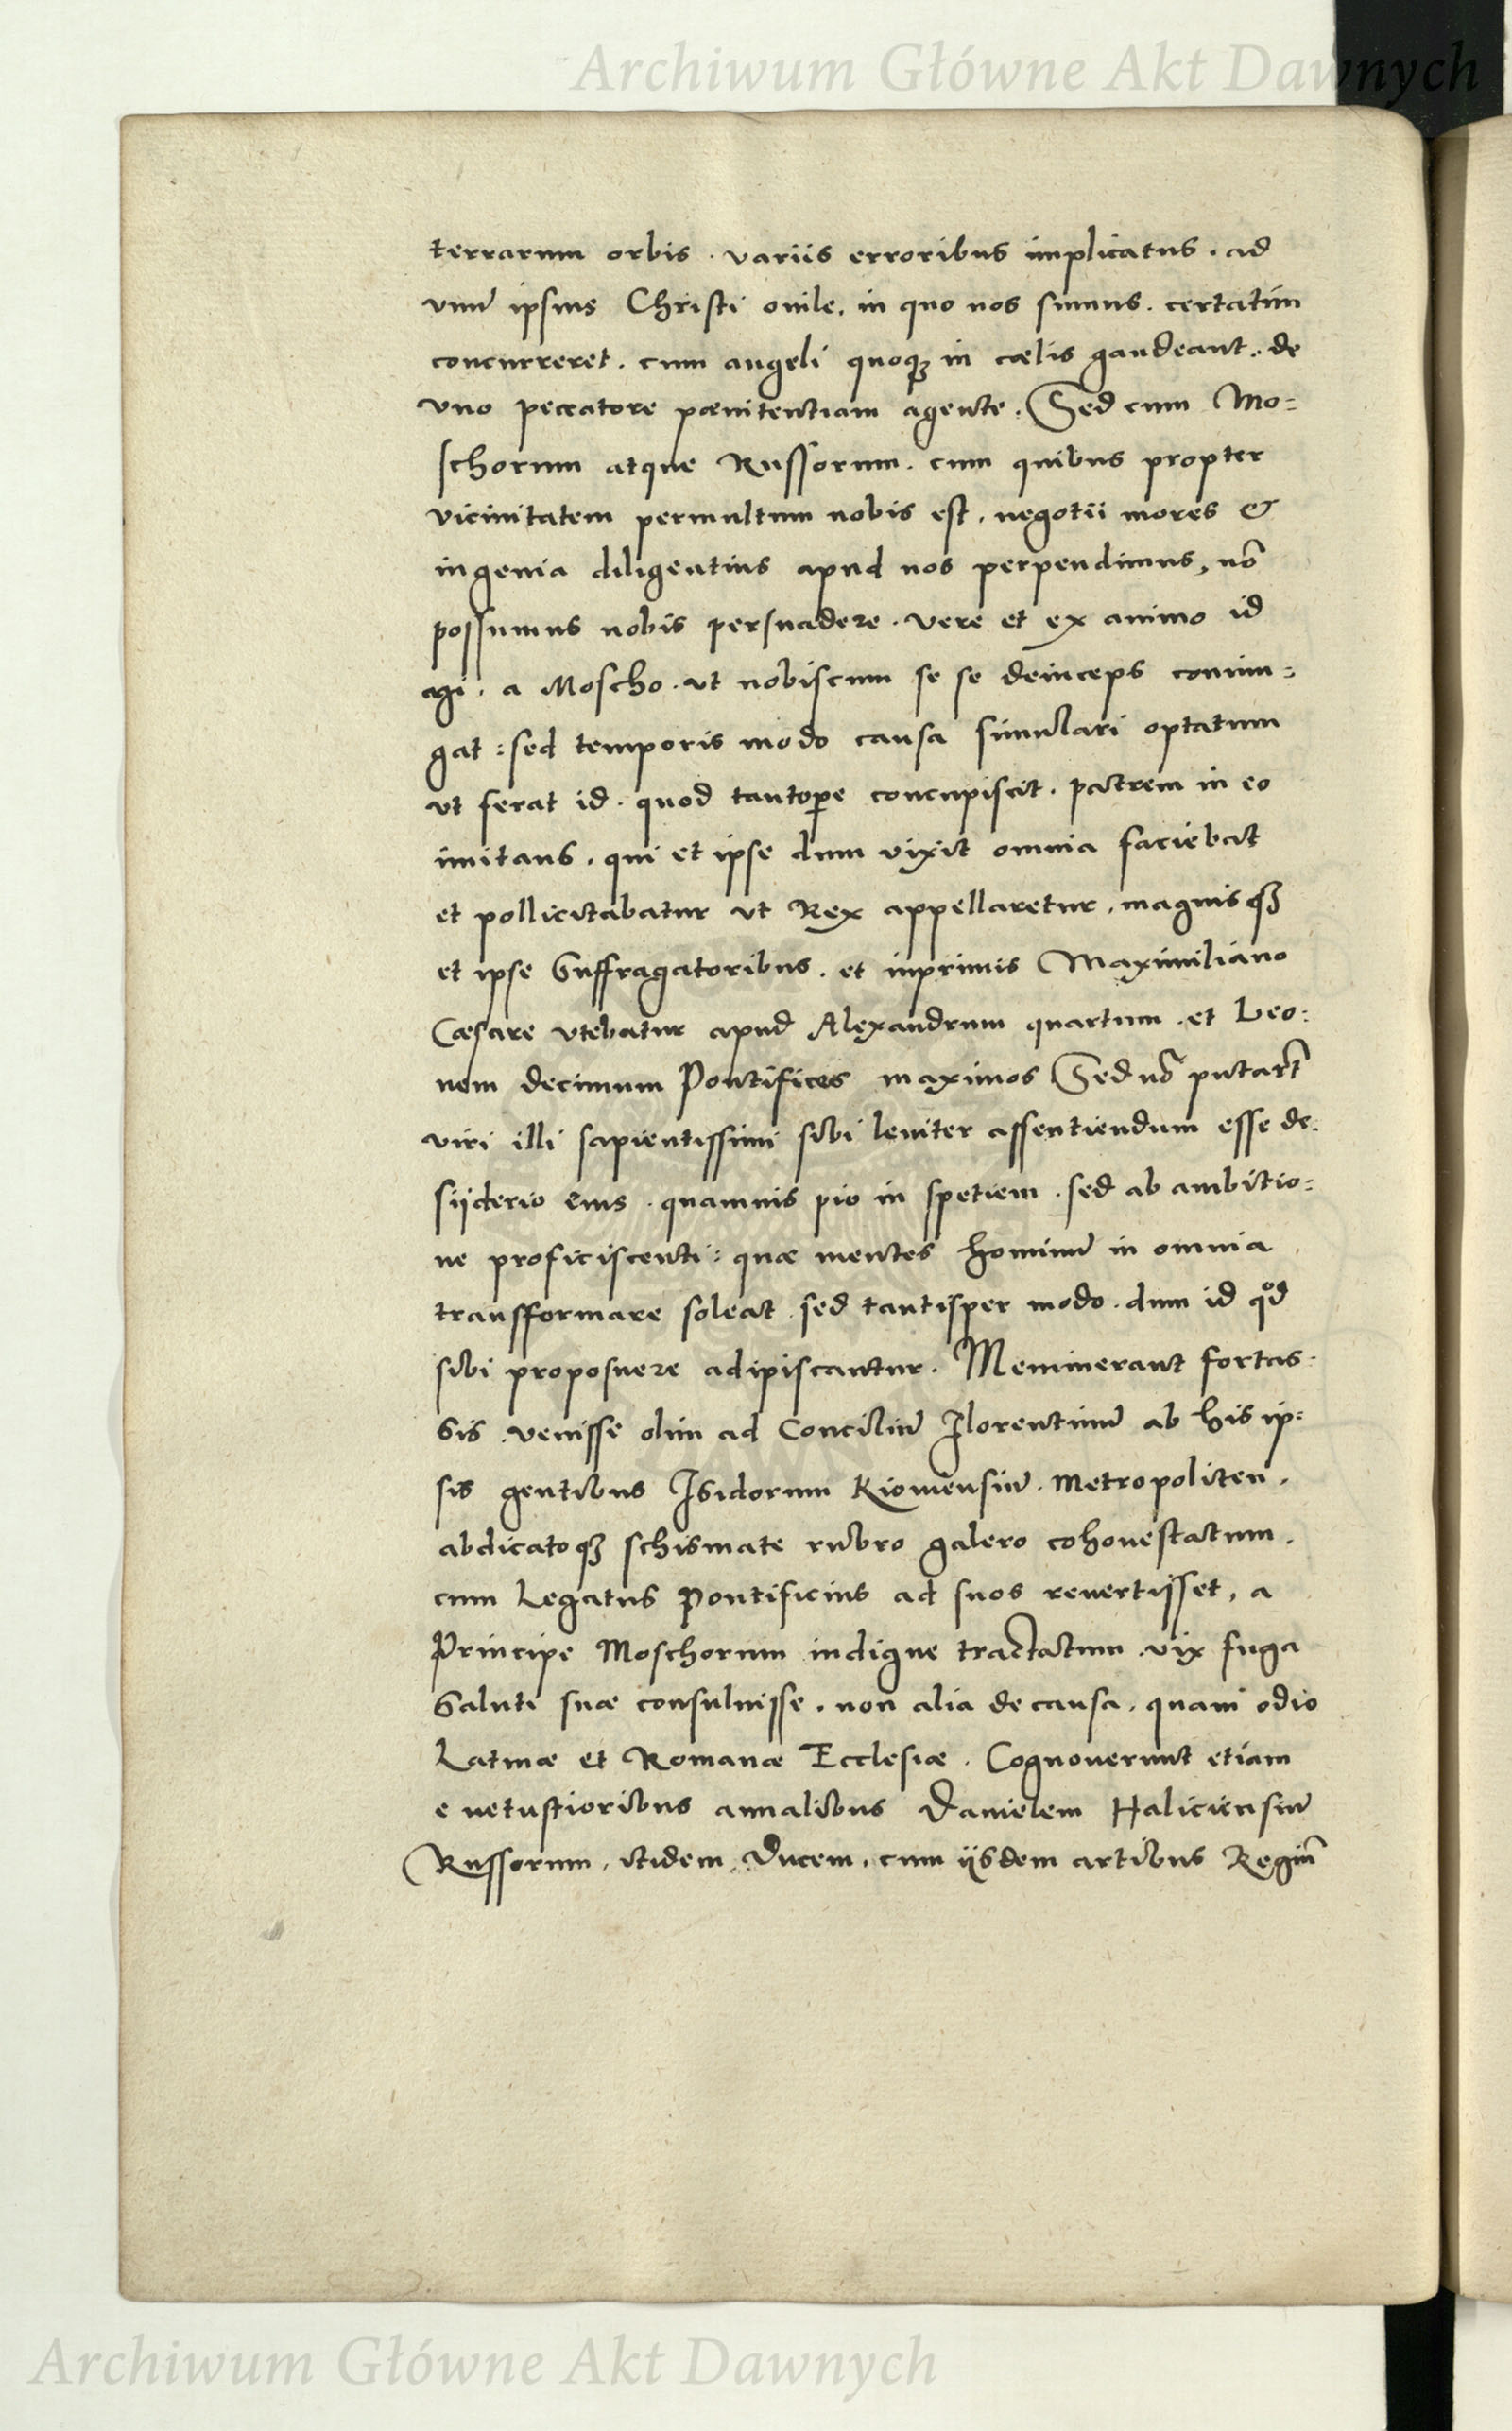 Archiwum Główne Akt Dawnych
terrarum orbis . variis erroribus implicatus . ad
vnū ipsius Christi ouile, in quo nos sumus . certatim
concurreret . cum angeli quoqꝫ in cælis gaudeant . de
vno peccatore pœnitentiam agente . Sed cum Mo=
schorum atque Russorum . cum quibus propter
vicinitatem permultum nobis est . negotii mores &
ingenia diligentius apud nos perpendimus, nō
possumus nobis persuadere . vere et ex animo id
agi . a Moscho . ut nobiscum se se deinceps coniun=
gat : sed temporis modo causa simulari optatum
ut ferat id . quod tantoꝑe concupiscit . patrem in eo
imitans . qui et ipse dum vixit omnia faciebat
et pollicitabatur ut Rex appellaretur, magnisqꝫ
et ipse suffragatoribus . et inprimis Maximiliano
Cæsare vtebatur apud Alexandrum quartum . et Leo:
nem decimum Pontifices maximos Sed nō putarūt
viri illi sapientissimi sibi leuiter assentiendum esse de:
siiderio eius . quamuis pio in spetiem . sed ab ambitio=
ne proficiscenti : quæ mentes hominū in omnia
transfformare soleat . sed tantisper modo . dum id qod
sibi proposuere adipiscantur . Meminerant fortas:
sis . venisse olim ad Conciliū Florentinū ab his ip:
sis gentibus Isidorum Kiouiensiū . Metropoliten .
abdicatoqꝫ schismate rubro galero cohonestatum .
cum Legatus Pontificius ad suos reuertisset, a
Principe Moschorum indigne tractatum . vix fuga
saluti suæ consuluisse . non alia de causa . quam odio
Latinæ et Romanæ Ecclesiæ . Cognouerunt etiam
e uetustioribus annalibus Danielem Haliciensiū
Russorum, itidem Ducem, cum iisdem artibus Regiū
Archiwum Główne Akt Dawnych